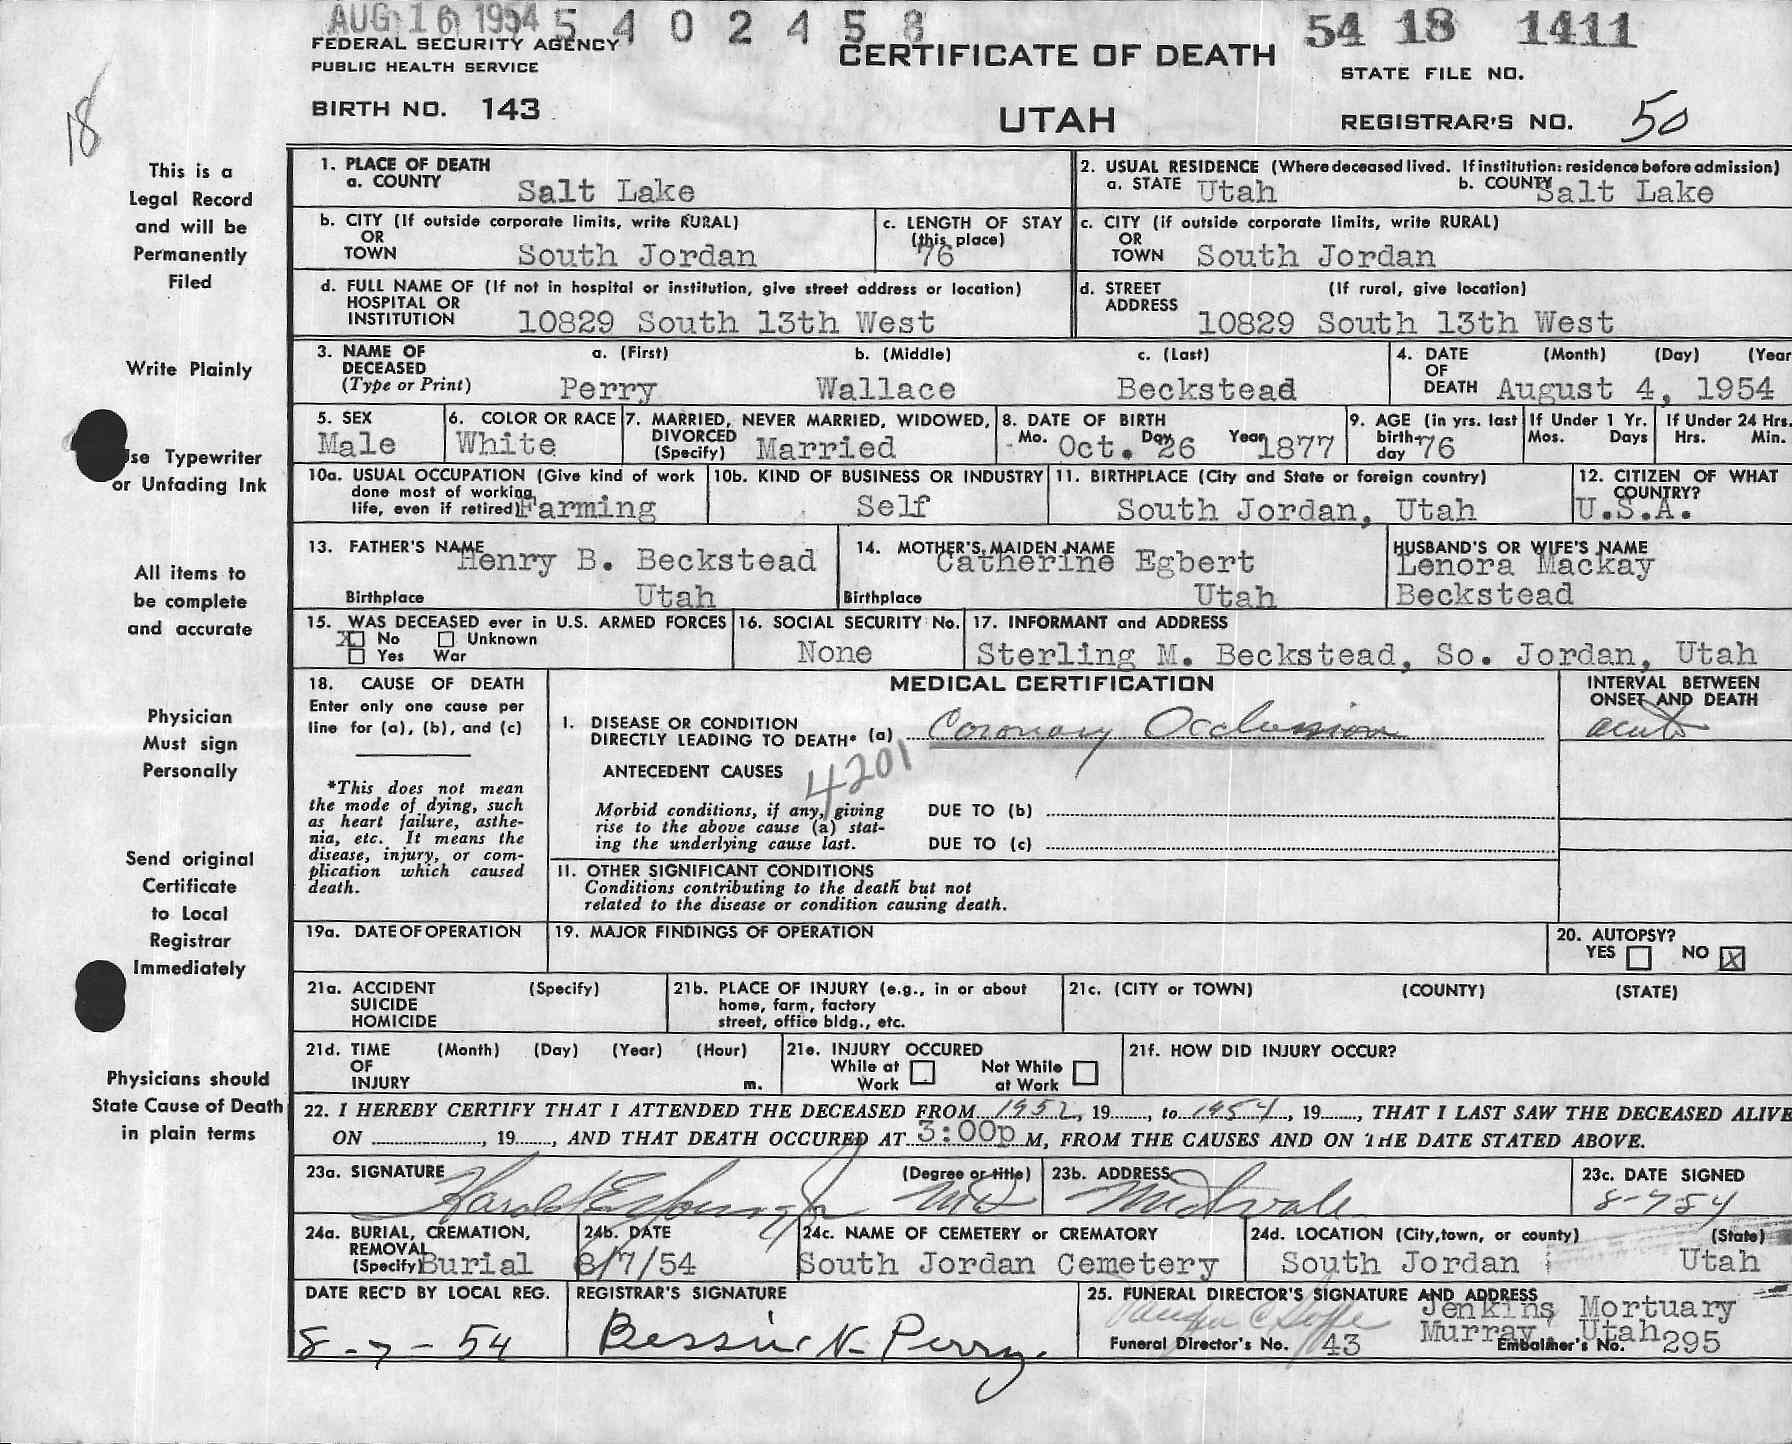 AUG 16 1954 5 4 0 2 4 5 8
54 18 1411
FEDERAL SECURITY AGENCY
PUBLIC HEALTH SERVICE
CERTIFICATE OF DEATH
STATE FILE NO.
BIRTH NO. 143
UTAH
REGISTRAR'S NO. 50
18
This is a
Legal Record
and will be
Permanently
Filed
Write Plainly
Use Typewriter
or Unfading Ink
All items to
be complete
and accurate
Physician
Must sign
Personally
Send original
Certificate
to Local
Registrar
Immediately
Physicians should
State Cause of Death
in plain terms
1. PLACE OF DEATH
a. COUNTY Salt Lake
2. USUAL RESIDENCE (Where deceased lived. If institution: residence before admission)
a. STATE Utah b. COUNTY Salt Lake
b. CITY (If outside corporate limits, write RURAL)
OR
TOWN South Jordan
c. LENGTH OF STAY
(this place)
76
c. CITY (if outside corporate limits, write RURAL)
OR
TOWN South Jordan
d. FULL NAME OF (If not in hospital or institution, give street address or location)
HOSPITAL OR
INSTITUTION 10829 South 13th West
d. STREET (If rural, give location)
ADDRESS
10829 South 13th West
3. NAME OF a. (First) b. (Middle) c. (Last)
DECEASED
(Type or Print) Perry Wallace Beckstead
4. DATE (Month) (Day) (Year
OF
DEATH August 4, 1954
5. SEX
Male
6. COLOR OR RACE
White
7. MARRIED, NEVER MARRIED, WIDOWED,
DIVORCED
(Specify) Married
8. DATE OF BIRTH
Mo. Oct. Day 26 Year 1877
9. AGE (in yrs. last
birth-
day 76
If Under 1 Yr.
Mos. Days
If Under 24 Hrs.
Hrs. Min.
10a. USUAL OCCUPATION (Give kind of work
done most of working
life, even if retired) Farming
10b. KIND OF BUSINESS OR INDUSTRY
Self
11. BIRTHPLACE (City and State or foreign country)
South Jordan, Utah
12. CITIZEN OF WHAT
COUNTRY?
U.S.A.
13. FATHER'S NAME Henry B. Beckstead
Birthplace Utah
14. MOTHER'S MAIDEN NAME Catherine Egbert
Birthplace Utah
HUSBAND'S OR WIFE'S NAME
Lenora Mackay
Beckstead
15. WAS DECEASED ever in U.S. ARMED FORCES
X No Unknown
Yes War
16. SOCIAL SECURITY No.
None
17. INFORMANT and ADDRESS
Sterling M. Beckstead, So. Jordan, Utah
18. CAUSE OF DEATH
Enter only one cause per
line for (a), (b), and (c)
*This does not mean
the mode of dying, such
as heart failure, asthe-
nia, etc. It means the
disease, injury, or com-
plication which caused
death.
MEDICAL CERTIFICATION
INTERVAL BETWEEN
ONSET AND DEATH
I. DISEASE OR CONDITION
DIRECTLY LEADING TO DEATH* (a) Coronary Occlusion acute
ANTECEDENT CAUSES 4201
Morbid conditions, if any, giving
rise to the above cause (a) stat-
ing the underlying cause last.
DUE TO (b)
DUE TO (c)
II. OTHER SIGNIFICANT CONDITIONS
Conditions contributing to the death but not
related to the disease or condition causing death.
19a. DATE OF OPERATION
19. MAJOR FINDINGS OF OPERATION
20. AUTOPSY?
YES NO X
21a. ACCIDENT (Specify)
SUICIDE
HOMICIDE
21b. PLACE OF INJURY (e.g., in or about
home, farm, factory
street, office bldg., etc.
21c. (CITY or TOWN) (COUNTY) (STATE)
21d. TIME (Month) (Day) (Year) (Hour)
OF
INJURY m.
21e. INJURY OCCURED
While at Not While
Work at Work
21f. HOW DID INJURY OCCUR?
22. I HEREBY CERTIFY THAT I ATTENDED THE DECEASED FROM 1952, 19......, to 1954, 19......, THAT I LAST SAW THE DECEASED ALIVE
ON ...................., 19......, AND THAT DEATH OCCURED AT 3:00p M, FROM THE CAUSES AND ON THE DATE STATED ABOVE.
23a. SIGNATURE (Degree or title)
Harold MD
23b. ADDRESS
Midvale
23c. DATE SIGNED
8-7-54
24a. BURIAL, CREMATION,
REMOVAL
(Specify) Burial
24b. DATE
8/7/54
24c. NAME OF CEMETERY or CREMATORY
South Jordan Cemetery
24d. LOCATION (City, town, or county) (State)
South Jordan Utah
DATE REC'D BY LOCAL REG.
8-7-54
REGISTRAR'S SIGNATURE
Bessie N. Perry
25. FUNERAL DIRECTOR'S SIGNATURE AND ADDRESS
Jenkins Mortuary
Murray, Utah
Funeral Director's No. 43 Embalmer's No. 295